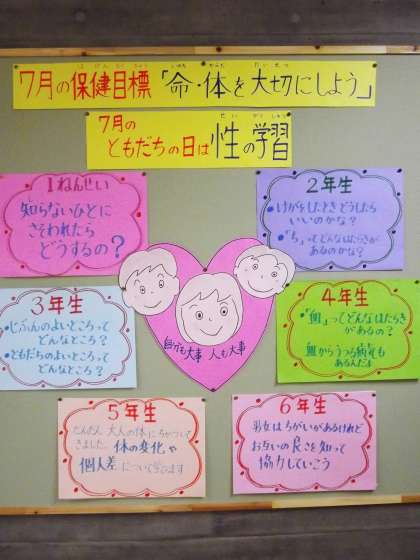 7月の保健目標「命・体を大切にしよう」
7月の
ともだちの日は性の学習
1ねんせい
知らないひとに
さそわれたら
どうするの？
2年生
・けがをしたときどうしたら
いいのかな？
・「ち」ってどんなはたらきが
あるのかな？
3年生
・じぶんのよいところって
どんなところ？
・ともだちのよいところって
どんなところ？
4年生
「血」ってどんなはたらき
があるの？
血からうつる病気も
あるんだよ
自分も大事 人も大事
5年生
だんだん大人の体に近がついて
きました。体の変化や
個人差について学びます
6年生
男女はちがいがあるけれど
お互いの良さを知って
協力していこう